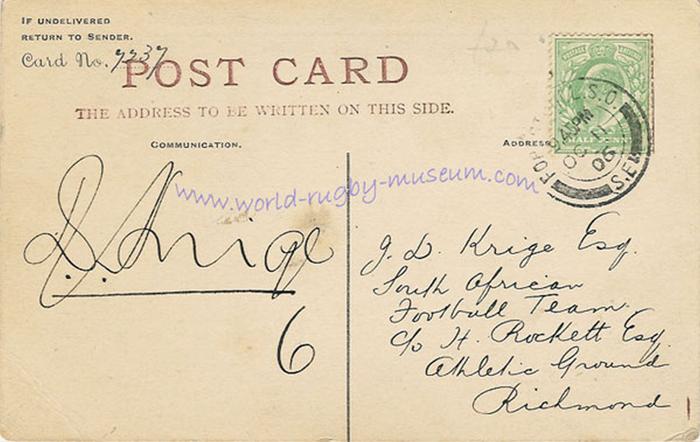 IF UNDELIVERED
RETURN TO SENDER.
Card No. 7237
POST CARD
THE ADDRESS TO BE WRITTEN ON THIS SIDE.
COMMUNICATION.
ADDRESS
HALF PENNY
S.O.
OC 11
06
S.E.
www.world-rugby-museum.com
J. D. Krige
6
J. D. Krige Esq.
South African
Football Team.
c/o H. Rockett Esq
Athletic Ground
Richmond